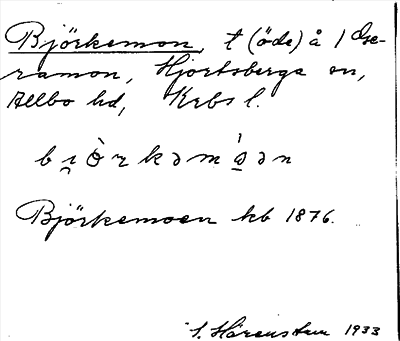 Björkemon, t (öde) å 1 Ise-
ramon, Hjortsberga sn,
Allbo hd, Krbs l.
b i ò r k ə m a ə n
Björkemoen kb 1876.
1933